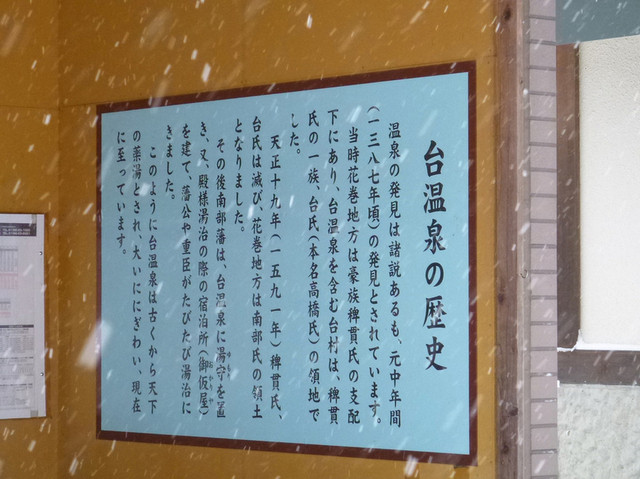 台温泉の歴史
温泉の発見は諸説あるも、元中年間
(一三八七年頃)の発見とされています。
当時花巻地方は豪族稗貫氏の支配
下にあり、台温泉を含む台村は、稗貫
氏の一族、台氏(本名高橋氏)の領地で
した。
天正十九年(一五九一年)稗貫氏、
台氏は滅び、花巻地方は南部氏の領土
となりました。
その後南部藩は、台温泉に湯守を置
き、又、殿様湯治の際の宿泊所(御仮屋)
を建て、藩公や重臣がたびたび湯治に
きました。
このように台温泉は古くから天下
の薬湯とされ、大いににぎわい、現在
に至っています。